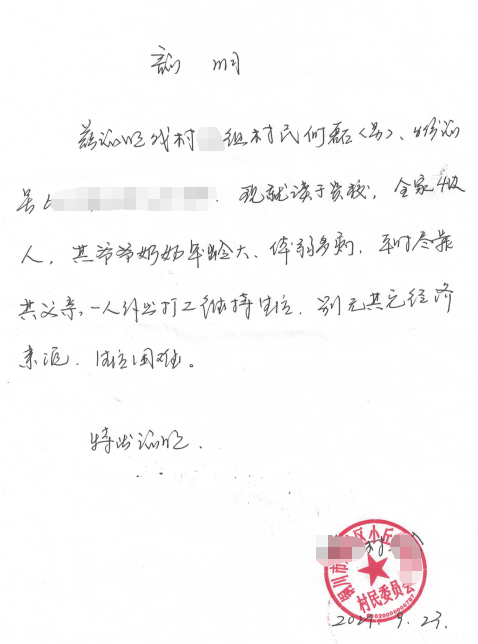 证 明
兹证明我村 组村民何磊(男)、身份证
号 . 现就读于贵校，全家4口
人，其爷爷奶奶年龄大、体弱多病，平时尽靠
其父亲，一人外出打工维持生活，别无其它经济
来源，生活困难。
特出证明.
铜川市 区小丘
村民委员会
2021.9.23.